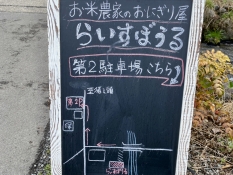 お米農家のおにぎり屋
らいすぼうる
第2駐車場こちら